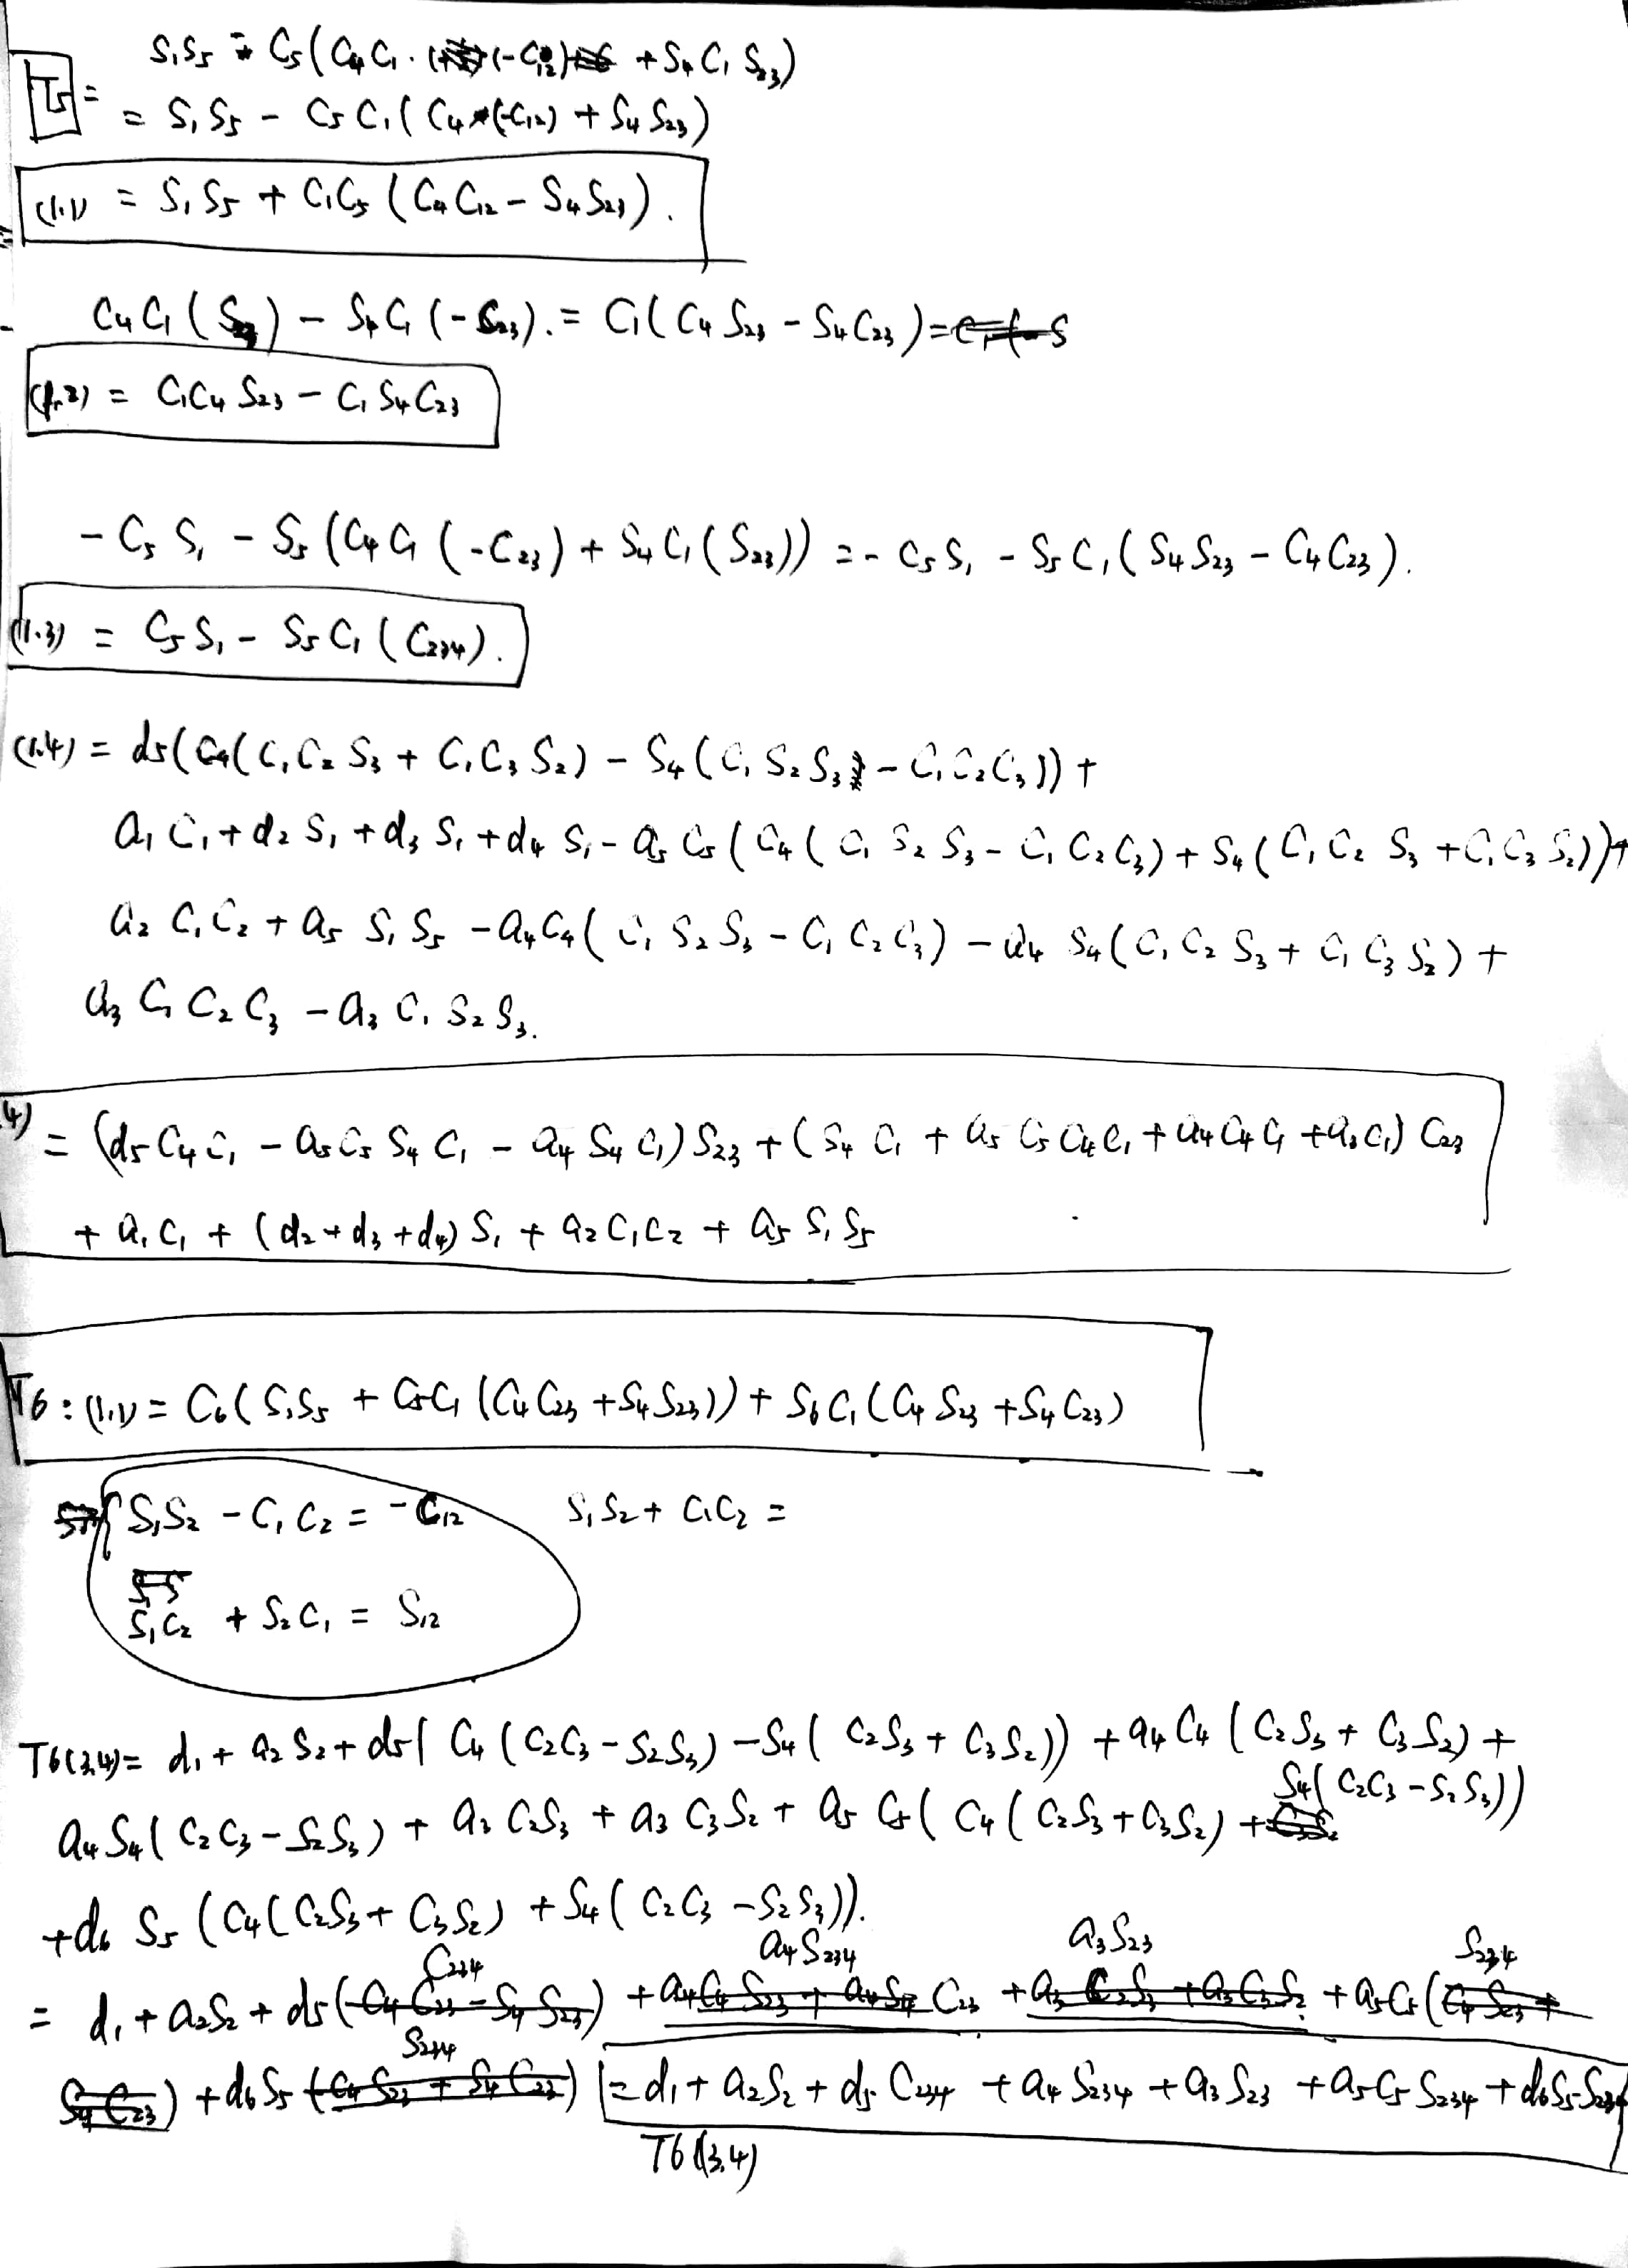 T5 = S₁S₅ = C₅(C₄C₁·(-C₁₂) + S₄C₁S₂₃)
= S₁S₅ - C₅C₁(C₄(-C₁₂) + S₄S₂₃)
(1.1) = S₁S₅ + C₁C₅(C₄C₁₂ - S₄S₂₃).
C₄C₁(S₂₃) - S₄C₁(-C₂₃). = C₁(C₄S₂₃ - S₄C₂₃) =
(1.2) = C₁C₄S₂₃ - C₁S₄C₂₃
- C₅S₁ - S₅(C₄C₁(-C₂₃) + S₄C₁(S₂₃)) = - C₅S₁ - S₅C₁(S₄S₂₃ - C₄C₂₃).
(1.3) = C₅S₁ - S₅C₁(C₂₃₄).
(1.4) = d₅(C₄(C₁C₂S₃ + C₁C₃S₂) - S₄(C₁S₂S₃ - C₁C₂C₃)) +
a₁C₁ + d₂S₁ + d₃S₁ + d₄S₁ - a₅C₅(C₄(C₁S₂S₃ - C₁C₂C₃) + S₄(C₁C₂S₃ + C₁C₃S₂)) +
a₂C₁C₂ + a₅S₁S₅ - a₄C₄(C₁S₂S₃ - C₁C₂C₃) - a₄S₄(C₁C₂S₃ + C₁C₃S₂) +
a₃C₁C₂C₃ - a₃C₁S₂S₃.
4) = (d₅C₄C₁ - a₅C₅S₄C₁ - a₄S₄C₁)S₂₃ + (S₄C₁ + a₅C₅C₄C₁ + a₄C₄C₁ + a₃C₁)C₂₃
+ a₁C₁ + (d₂ + d₃ + d₄)S₁ + a₂C₁C₂ + a₅S₁S₅
T6: (1.1) = C₆(S₁S₅ + C₅C₁(C₄C₂₃ + S₄S₂₃)) + S₆C₁(C₄S₂₃ + S₄C₂₃)
S₁S₂ - C₁C₂ = -C₁₂ S₁S₂ + C₁C₂ =
S₁C₂ + S₂C₁ = S₁₂
T6(3,4) = d₁ + a₂S₂ + d₅(C₄(C₂C₃ - S₂S₃) - S₄(C₂S₃ + C₃S₂)) + a₄C₄(C₂S₃ + C₃S₂) +
a₄S₄(C₂C₃ - S₂S₃) + a₃C₂S₃ + a₃C₃S₂ + a₅C₅(C₄(C₂S₃ + C₃S₂) + S₄(C₂C₃ - S₂S₃))
+ d₆S₅(C₄(C₂S₃ + C₃S₂) + S₄(C₂C₃ - S₂S₃)).
C₂₃₄ a₄S₂₃₄ a₃S₂₃ S₂₃₄
= d₁ + a₂S₂ + d₅(C₄C₂₃ - S₄S₂₃) + a₄C₄S₂₃ + a₄S₄C₂₃ + a₃C₂S₃ + a₃C₃S₂ + a₅C₅(C₄S₂₃ +
S₂₃₄
S₄C₂₃) + d₆S₅(C₄S₂₃ + S₄C₂₃) = d₁ + a₂S₂ + d₅C₂₃₄ + a₄S₂₃₄ + a₃S₂₃ + a₅C₅S₂₃₄ + d₆S₅S₂₃₄
T6(3,4)